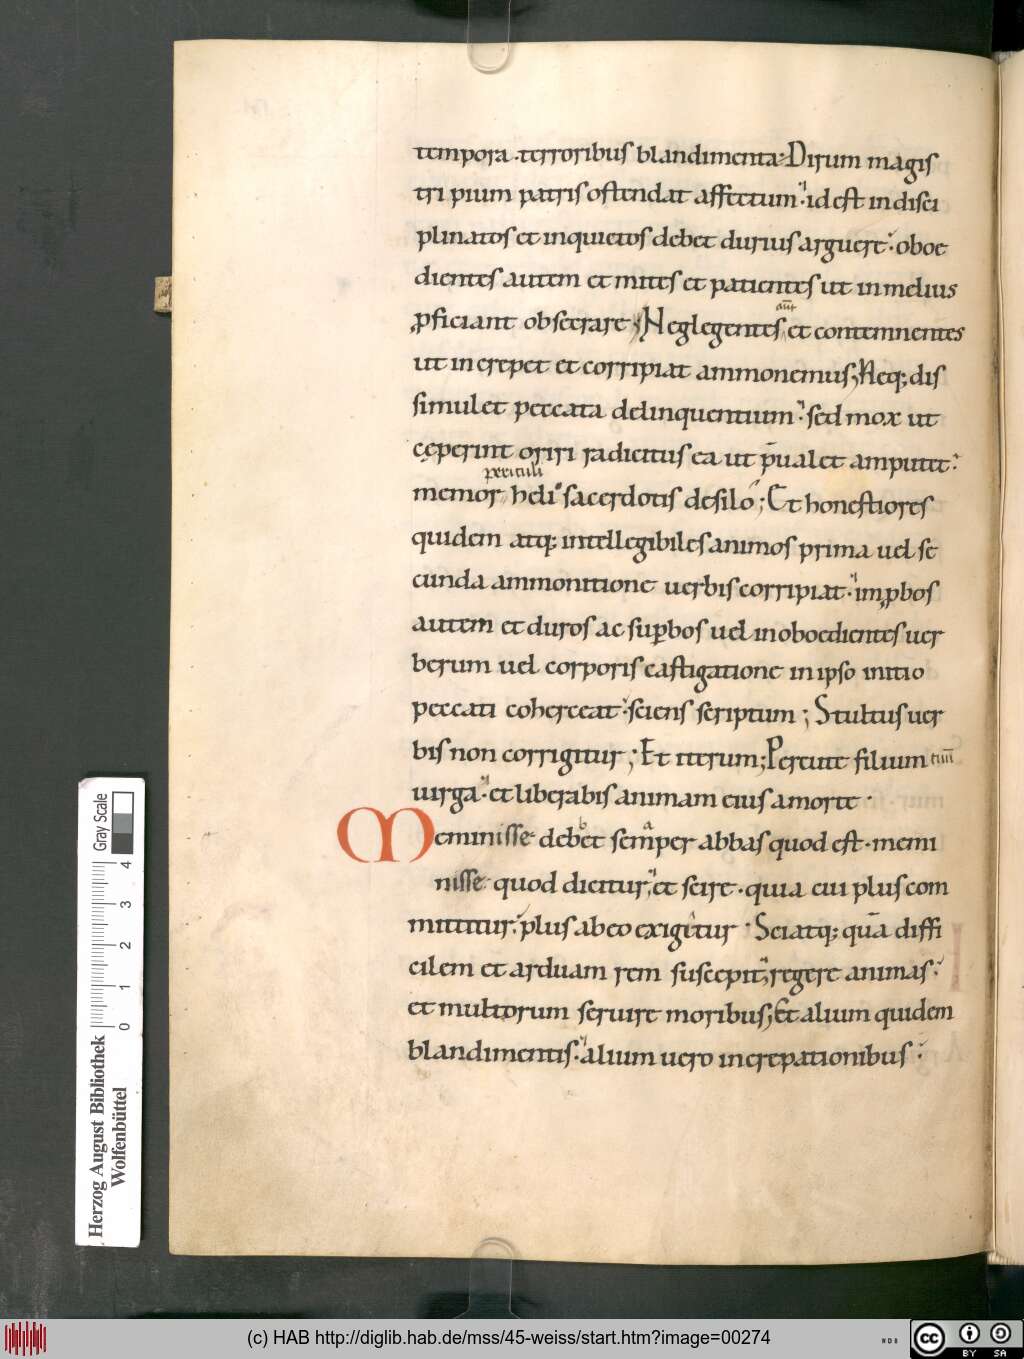 tempora . terroribus blandimenta. Dirum magis
tri pium patris ostendat affectum. id est indisci
plinatos et inquietos debet durius arguere. oboe
dientes autem et mites et patientes ut in melius
aūt
ꝓficiant obsecrare; Neglegentes et contemnentes
ut increpet et corripiat ammonemus; Neq; dis
simulet peccata delinquentium. sed mox ut
cęperint oriri radicitus ea ut p̄ualet amputet.
periculi
memor heli sacerdotis desilo; Et honestiores
quidem atq; intellegibiles animos prima uel se
cunda ammonitione uerbis corripiat. imꝓbos
autem et duros ac suꝑbos uel inoboedientes uer
berum uel corporis castigatione in ipso initio
peccati coherceat. sciens scriptum; Stultus uer
bis non corrigitur; Et iterum; Percute filium tuū
uirga. et liberabis animam eius a morte.
Meminisse debet semper abbas quod est. memi
nisse quod dicitur, et scire. quia cui plus com
mittitur. plus ab eo exigitur. Sciatq; quā diffi
cilem et arduam rem suscepit, regere animas.
et multorum seruire moribus; Et alium quidem
blandimentis. alium uero increpationibus.
Herzog August Bibliothek
Wolfenbüttel
0 1 2 3 4
Gray Scale
(c) HAB http://diglib.hab.de/mss/45-weiss/start.htm?image=00274
cc BY SA